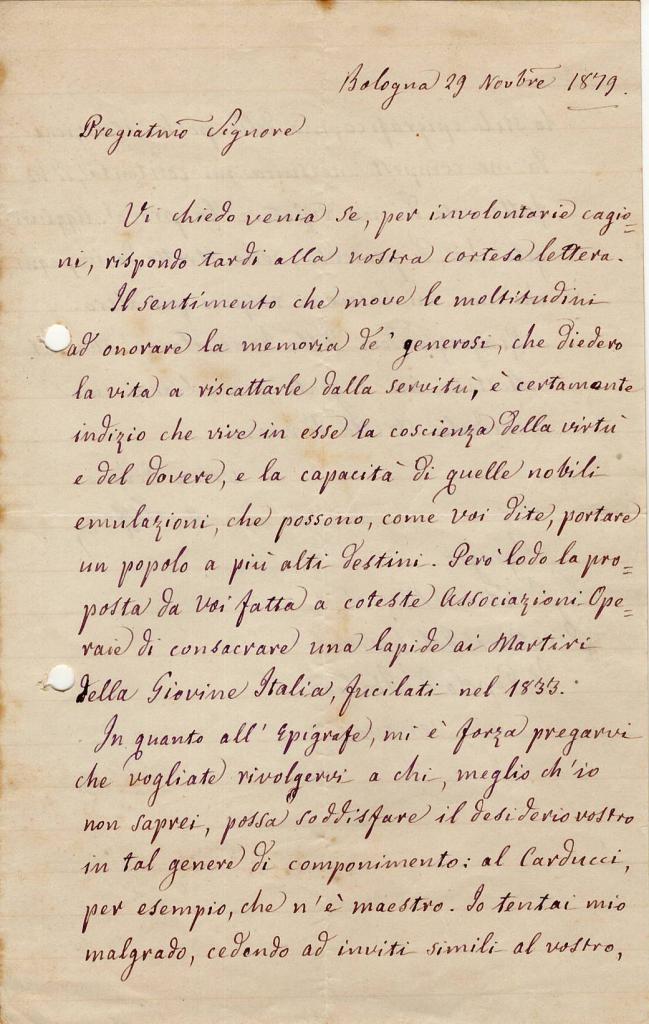 Bologna 29 Novbre 1879.
Pregiatmo Signore
Vi chiedo venia se, per involontarie cagio=
ni, rispondo tardi alla vostra cortese lettera.
Il sentimento che move le moltitudini
ad onorare la memoria de' generosi, che diedero
la vita a riscattarle dalla servitù, è certamente
indizio che vive in esse la coscienza della virtù
e del dovere, e la capacità di quelle nobili
emulazioni, che possono, come voi dite, portare
un popolo a più alti destini. Però lodo la pro=
posta da voi fatta a coteste Associazioni Ope=
raie di consacrare una lapide ai Martiri
della Giovine Italia, fucilati nel 1833.
In quanto all' Epigrafe, mi è forza pregarvi
che vogliate rivolgervi a chi, meglio ch'io
non saprei, possa soddisfare il desiderio vostro
in tal genere di componimento: al Carducci,
per esempio, che n'è maestro. Io tentai mio
malgrado, cedendo ad inviti simili al vostro,